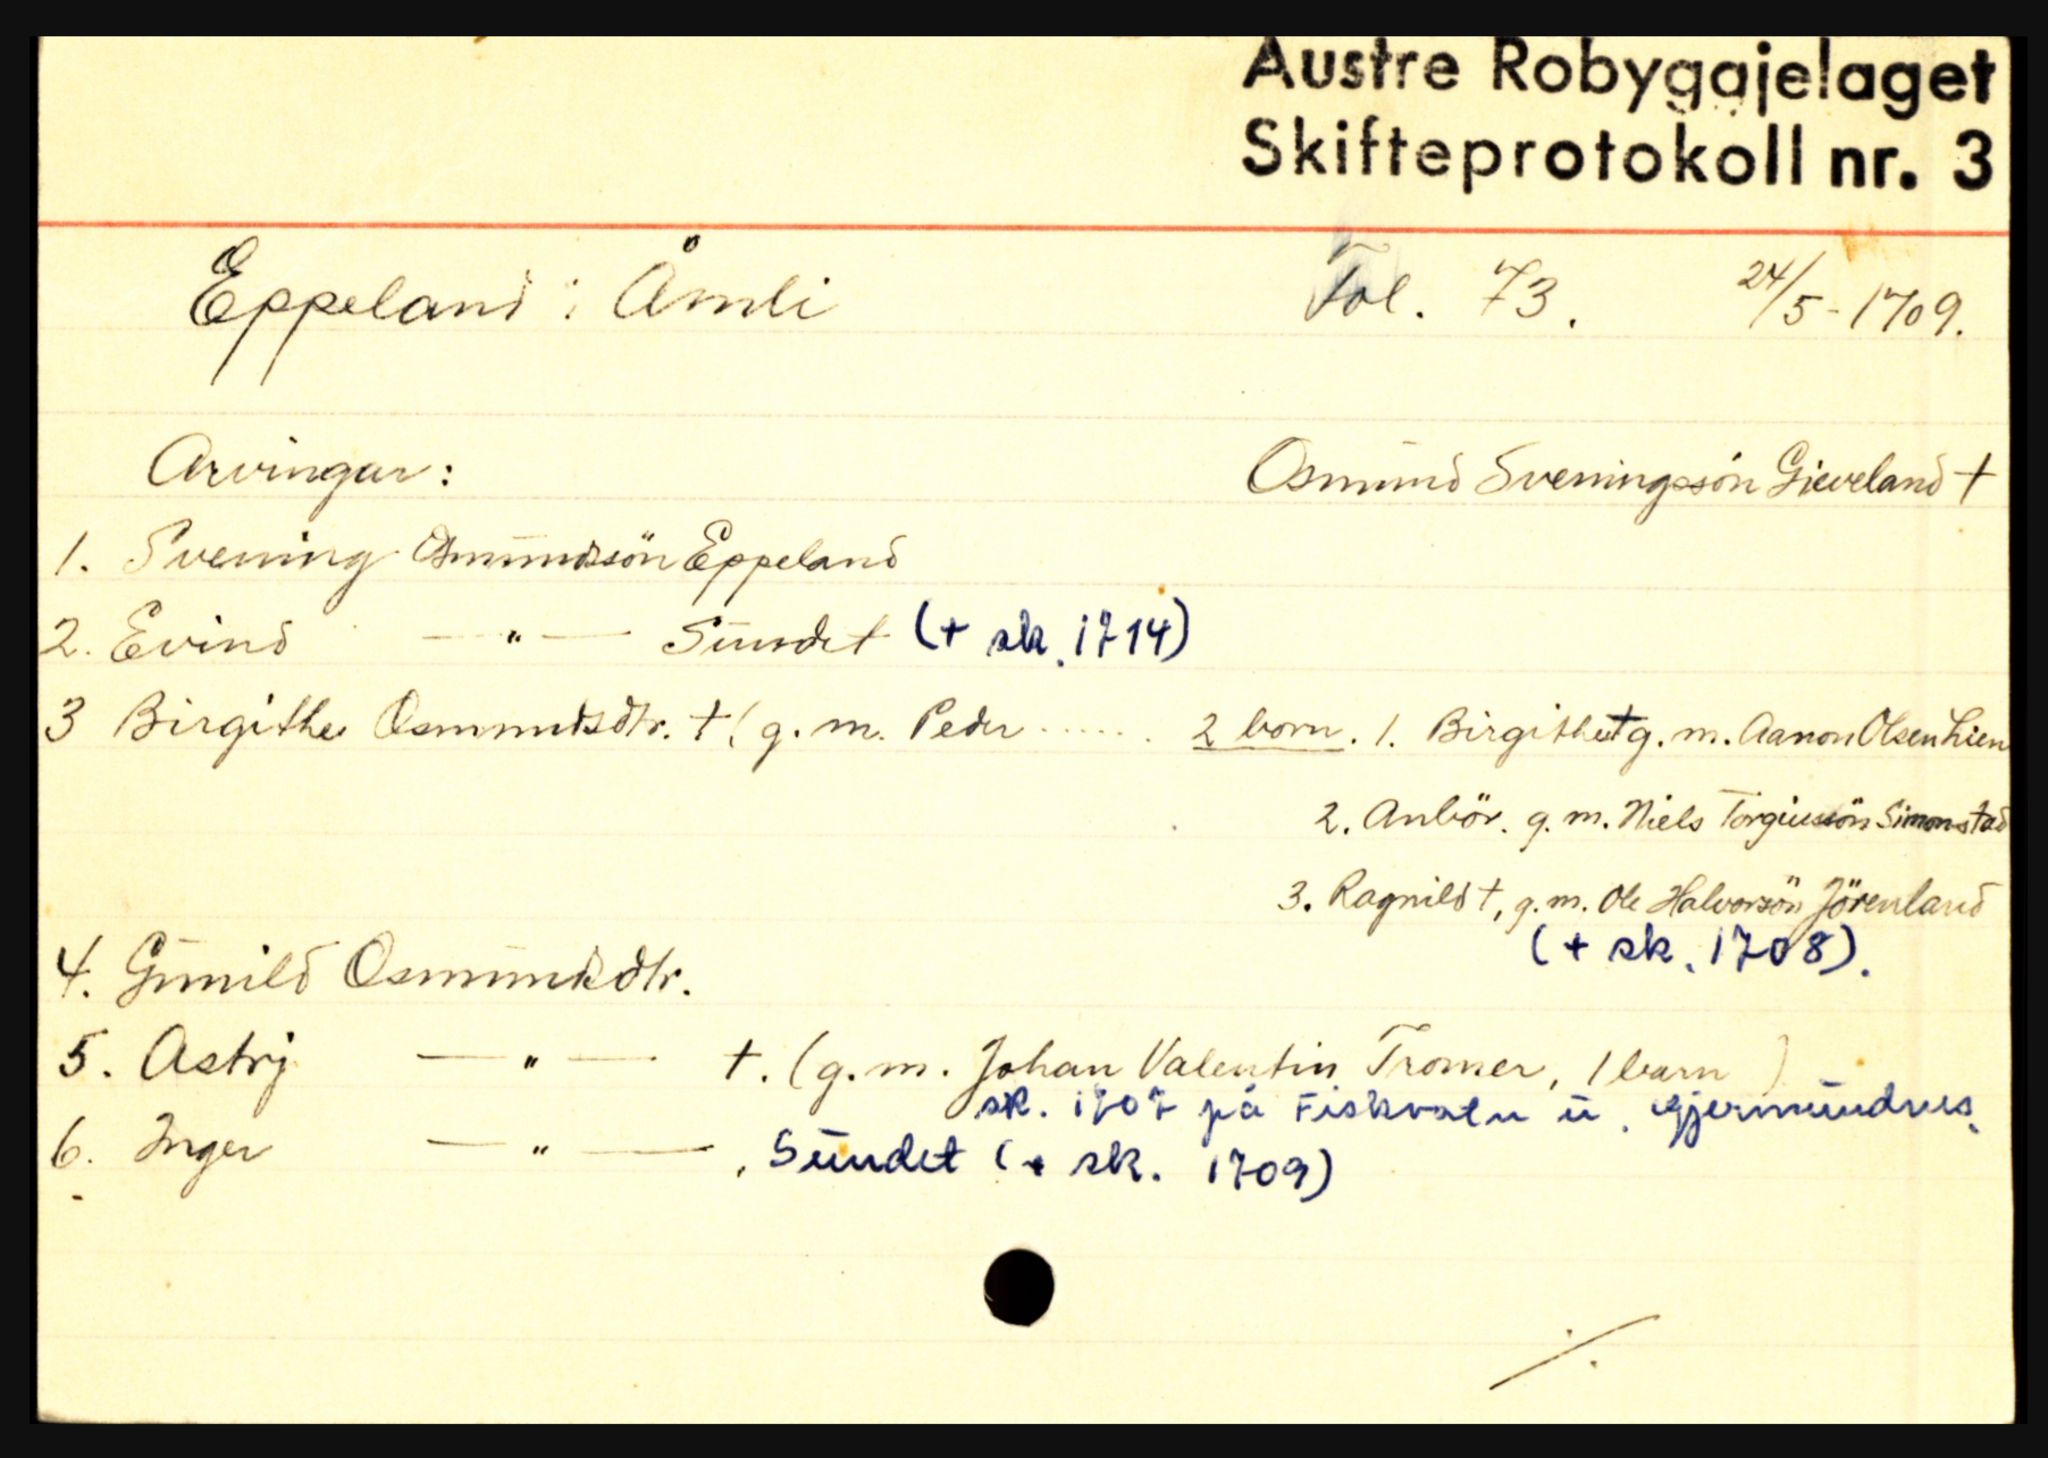 Austre Robygdelaget
Skifteprotokoll nr. 3
Eppeland i Åmli Fol. 73. 24/5-1709.
Arvingar: Osmund Sveningssön Gieveland †
1. Svening Osmundssön Eppeland
2. Evind — " — Sundet (+ sk. 1714)
3 Birgithe Osmundsdtr. † (g. m. Peder ...... 2 born. 1. Birgithe † g. m. Aanon Olsen Lien
2. Anbör. g. m. Niels Torgiussön Simonstad
3. Ragnild †, g. m. Ole Halvorsön Jörenland
(+ sk. 1708).
4. Gunild Osmundsdtr.
5. Astrj — " — †. (g. m. Johan Valentin Tromer, 1 barn)
sk. 1707 på Fiskvatn u. Gjermundnes.
6. Inger — " —, Sundet (+ sk. 1709)
./.